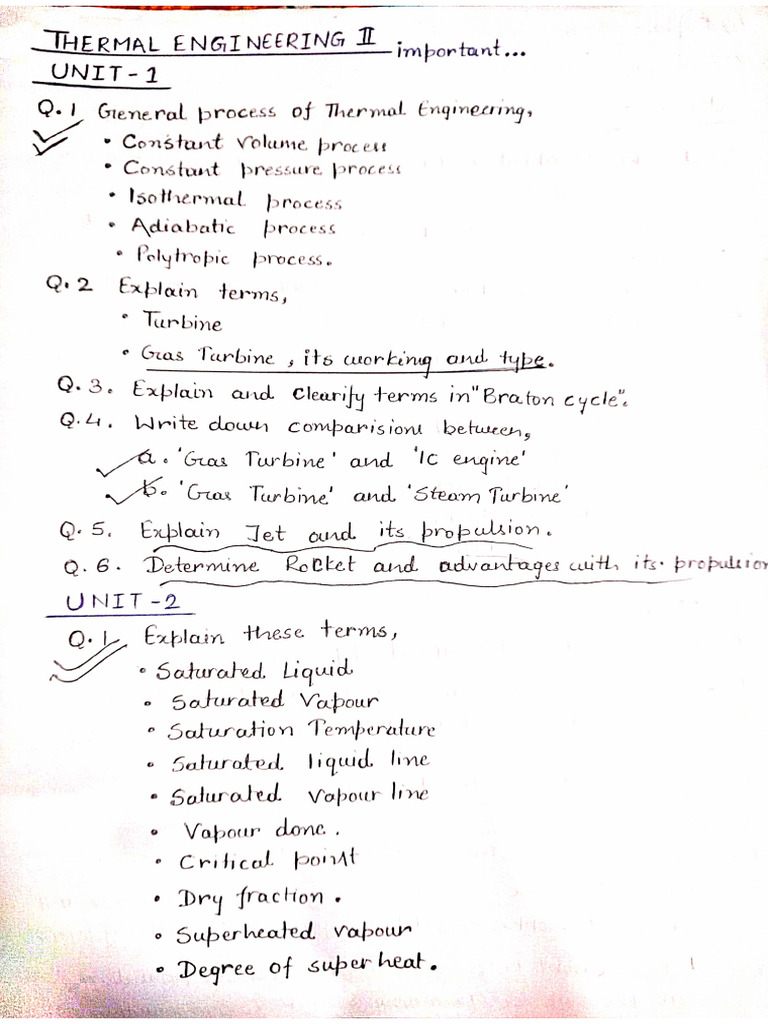 THERMAL ENGINEERING II important...
UNIT-1
Q.1 General process of Thermal Engineering,
• Constant volume process
• Constant pressure process
• Isothermal process
• Adiabatic process
• Polytropic process.
Q.2 Explain terms,
• Turbine
• Gas Turbine, its working and type.
Q.3. Explain and Clearify terms in "Braton cycle".
Q.4. Write down comparision between,
a. 'Gas Turbine' and 'IC engine'
b. 'Gas Turbine' and 'Steam Turbine'
Q.5. Explain Jet and its propulsion.
Q.6. Determine Rocket and advantages with its propulsion
UNIT-2
Q.1, Explain these terms,
• Saturated Liquid
• Saturated Vapour
• Saturation Temperature
• Saturated liquid line
• Saturated vapour line
• Vapour done.
• Critical point
• Dry fraction.
• Superheated vapour
• Degree of super heat.